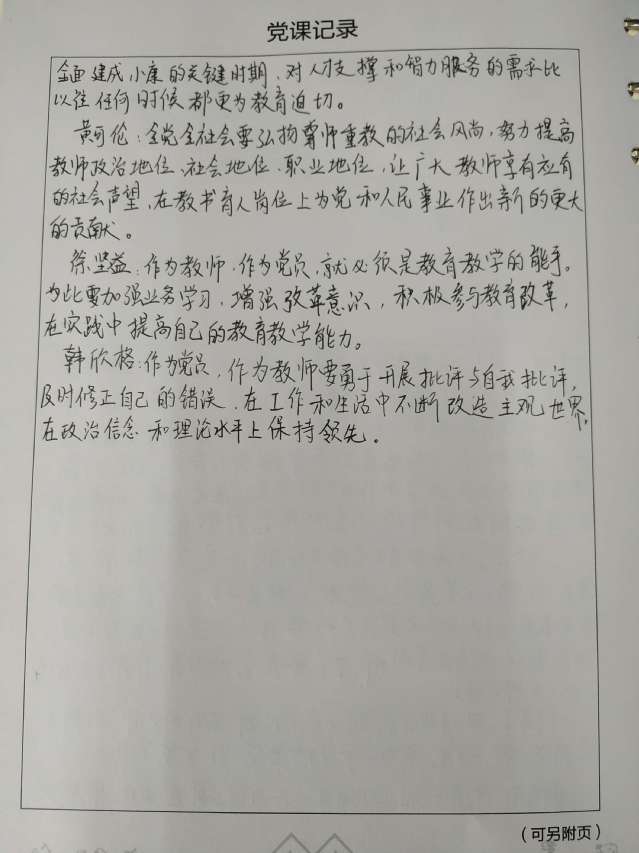 党课记录
全面建成小康的关键时期，对人才支撑和智力服务的需求比
以往任何时候都更为教育迫切。
黄可伦：全党全社会要弘扬尊师重教的社会风尚，努力提高
教师政治地位、社会地位、职业地位，让广大教师享有应有
的社会声望，在教书育人岗位上为党和人民事业作出新的更大
的贡献。
徐坚益：作为教师，作为党员，就必须是教育教学的能手。
为此要加强业务学习，增强改革意识，积极参与教育改革，
在实践中提高自己的教育教学能力。
韩欣格：作为党员，作为教师要勇于开展批评与自我批评，
及时修正自己的错误，在工作和生活中不断改造主观世界，
在政治信念和理论水平上保持领先。
（可另附页）